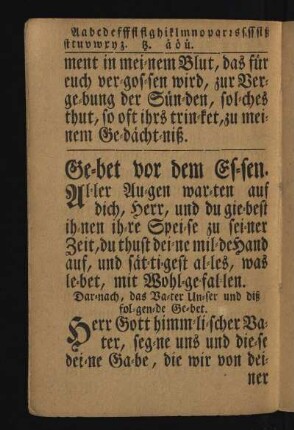 Aabcdefffflftghiklmnopqrsſſ.ſſſiß
ſttuvwxyz. tz. áöü.
ment in mei-nem Blut, das für
euch ver-goſ-ſen wird, zur Ver-
ge-bung der Sün-den, ſol-ches
thut, ſo oft ihrs trin-ket, zu mei-
nem Ge-dächt-niß.
Ge-bet vor dem Eſ-ſen.
Al-ler Au-gen war-ten auf
dich, Herr, und du gie-beſt
ih-nen ih-re Spei-ſe zu ſei-ner
Zeit, du thuſt dei-ne mil-de Hand
auf, und ſät-ti-geſt al-les, was
le-bet, mit Wohl-ge-fal-len.
Dar-nach, das Va-ter Un-ſer und diß
fol-gen-de Ge-bet.
Herr Gott himm-li-ſcher Va-
ter, ſeg-ne uns und die-ſe
dei-ne Ga-be, die wir von dei-
ner